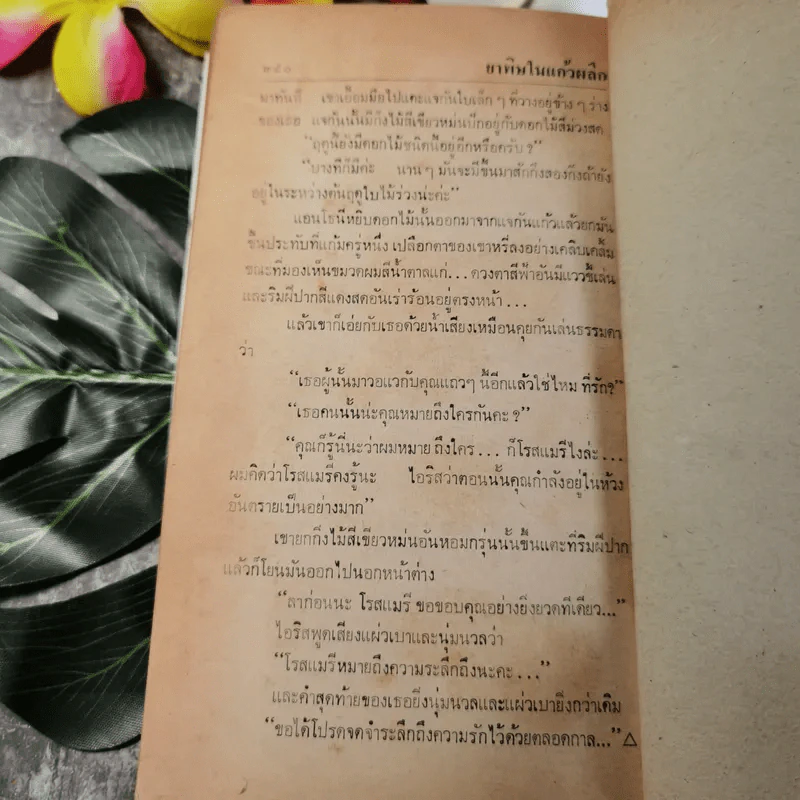 ๒๕๑ ยาพิษในแก้วผลึก
มาทันที เขาเอื้อมมือไปแตะแจกันใบเล็ก ๆ ที่วางอยู่ข้าง ๆ ร่าง
ของเธอ แจกันนั้นมีกิ่งไม้สีเขียวหม่นปักอยู่กับดอกไม้สีม่วงสด
“ฤดูนี้ยังมีดอกไม้ชนิดนี้อยู่อีกหรือครับ ?”
“บางทีก็มีค่ะ นาน ๆ มันจะมีขึ้นมาสักกิ่งสองกิ่งถ้ายัง
อยู่ในระหว่างต้นฤดูใบไม้ร่วงน่ะค่ะ”
แอนโธนีหยิบดอกไม้นั้นออกมาจากแจกันแก้วแล้วยกมัน
ขึ้นประทับที่แก้มครู่หนึ่ง เปลือกตาของเขาหรี่ลงอย่างเคลิบเคลิ้ม
ขณะที่มองเห็นขมวดผมสีน้ำตาลแก่... ดวงตาสีฟ้าอันมีแววขี้เล่น
และริมฝีปากสีแดงสดอันเร่าร้อนอยู่ตรงหน้า...
แล้วเขาก็เอ่ยกับเธอด้วยน้ำเสียงเหมือนคุยกันเล่นธรรมดา
ว่า
“เธอผู้นั้นมาวอแวกับคุณแถวๆ นี้อีกแล้วใช่ไหม ที่รัก?”
“เธอคนนั้นน่ะคุณหมายถึงใครกันคะ ?”
“คุณก็รู้นี่นะว่าผมหมายถึงใคร... ก็โรสแมรี่ไงล่ะ...
ผมคิดว่าโรสแมรี่คงรู้นะ ไอริสว่าตอนนั้นคุณกำลังอยู่ในห้วง
อันตรายเป็นอย่างมาก”
เขายกกิ่งไม้สีเขียวหม่นอันหอมกรุ่นนั้นขึ้นแตะที่ริมฝีปาก
แล้วก็โยนมันออกไปนอกหน้าต่าง
“ลาก่อนนะ โรสแมรี่ ขอขอบคุณอย่างยิ่งยวดทีเดียว...”
ไอริสพูดเสียงแผ่วเบาและนุ่มนวลว่า
“โรสแมรี่หมายถึงความระลึกถึงนะคะ...”
และคำสุดท้ายของเธอยิ่งนุ่มนวลและแผ่วเบายิ่งกว่าเดิม
“ขอได้โปรดจดจำระลึกถึงความรักไว้ด้วยตลอดกาล...”△